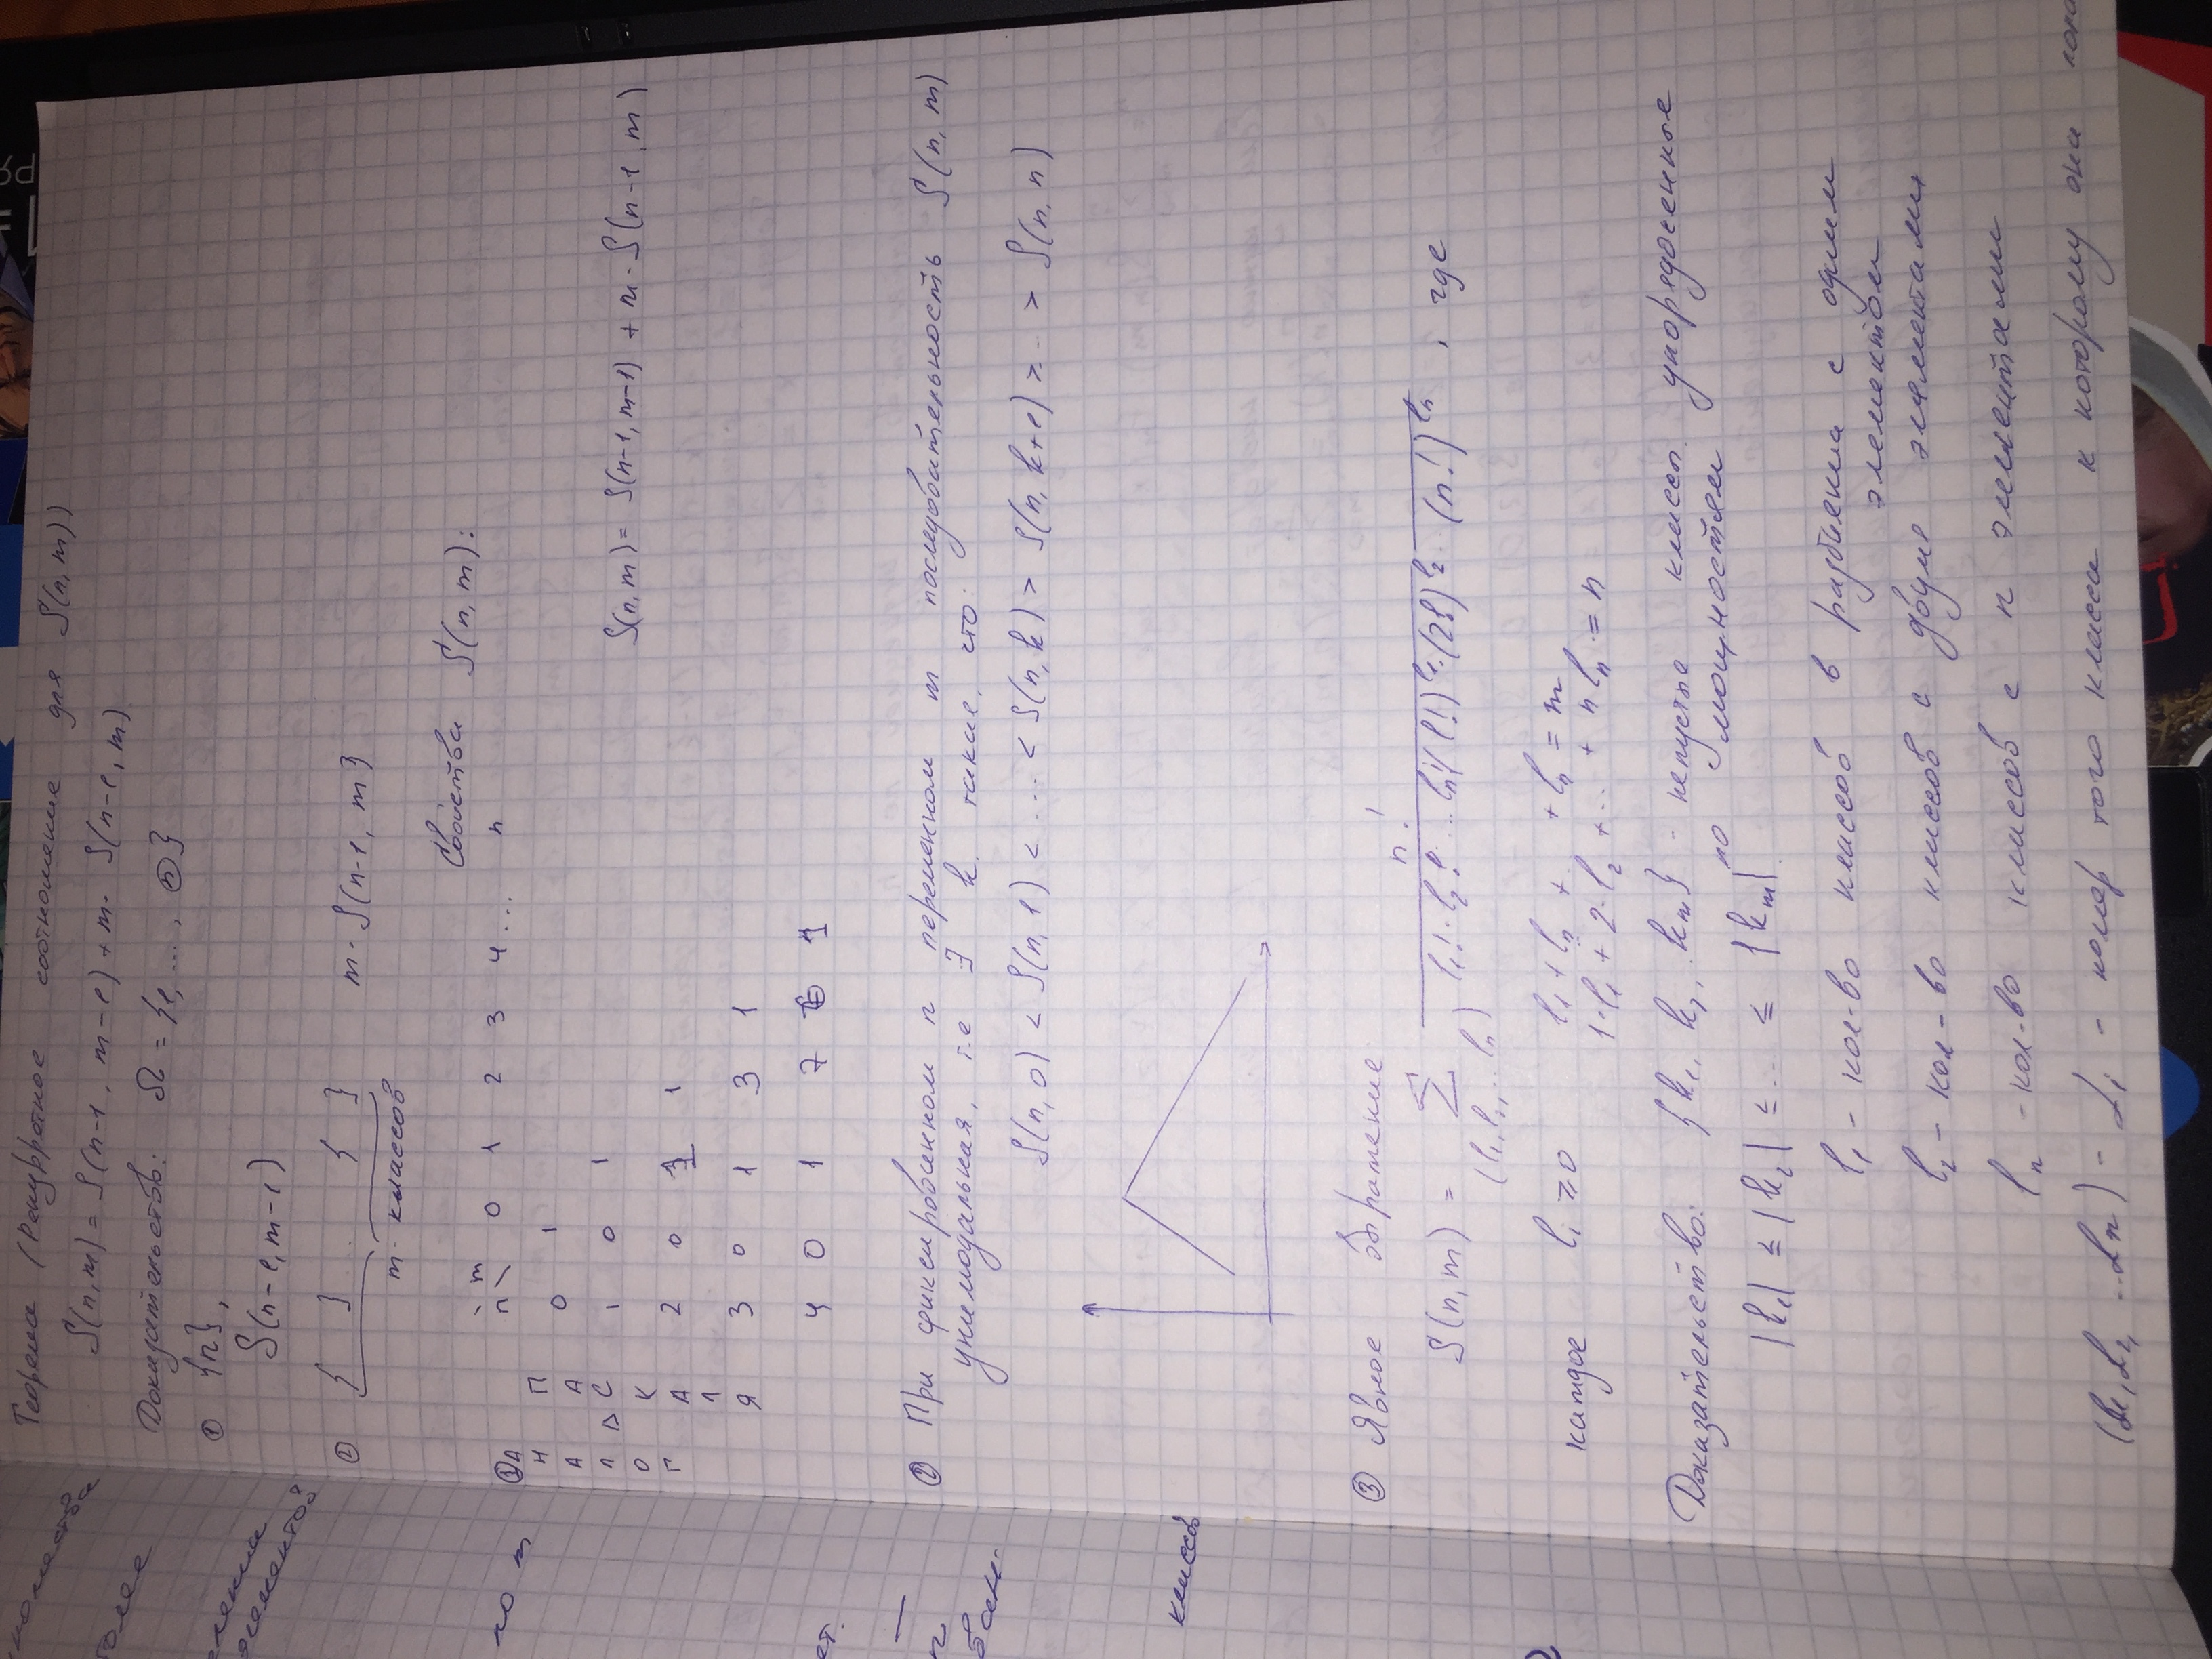 Теорема (Рекурретное соотношение для S(n,m))
S(n,m) = S(n-1, m-1) + m· S(n-1, m)
Доказательств: Ω = {1, ... , n}
① {n},
S(n-1, m-1)
② { } .. { } m· S(n-1, m}
m· классов
Свойства S(n,m):
① АНАЛОГ Δ ПАСКАЛЯ
n \ m 0 1 2 3 4 ... n
0 1
1 0 1
S(n,m) = S(n-1,m-1) + m· S(n-1, m)
2 0 1 1
3 0 1 3 1
4 0 1 7 6 1
② При фиксированном n переменном m последовательность S(n,m)
унимодальная, т.е ∃ k такие, что:
S(n,0) < S(n,1) < ... < S(n,k) > S(n,k+1) > ... > S(n,n)
③ Явное выражение
n!
S(n,m) = Σ l₁!·l₂! ... lₙ!(1!)^l₁·(2!)^l₂ ... (n!)^lₙ , где
(l₁,l₂,..lₙ)
каждое lᵢ ≥ 0 l₁ + lₙ + ... + lₙ = m
1·l₁ + 2·l₂ + ... + nlₙ = n
Доказательство: {k₁, k₂, kₘ} - непустые классы упорядоченные
по мощностям
|k₁| ≤ |k₂| ≤ ... ≤ |kₘ|
l₁ - кол-во классов в разбиении с одним
элементом
l₂ - кол-во классов с двумя элементами
lₙ - кол-во классов с n элементами
(L₁, L₂, ..Lₙ) - Lᵢ - номер того класса к которому они попа
более
элементов
по m
ет.
классов